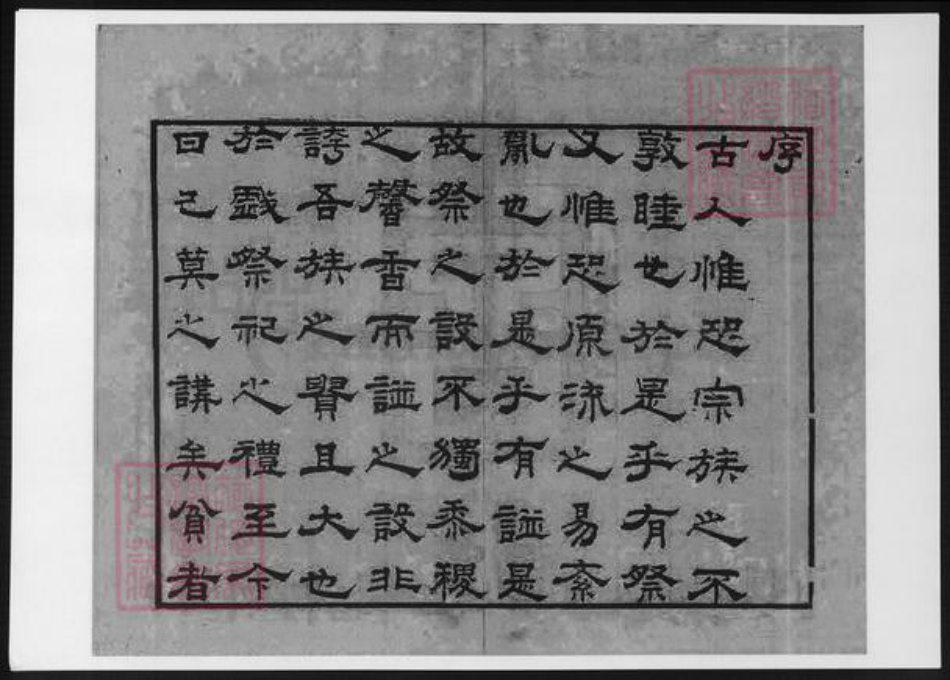 序
古人惟恐宗族之不
敦睦也於是乎有祭
又惟恐原流之易紊
亂也於是乎有譜是
故祭之設不獨黍稷
之馨香而譜之設非
誇吾族之賢且大也
於戲祭祀之禮至今
日已莫之講矣貧者